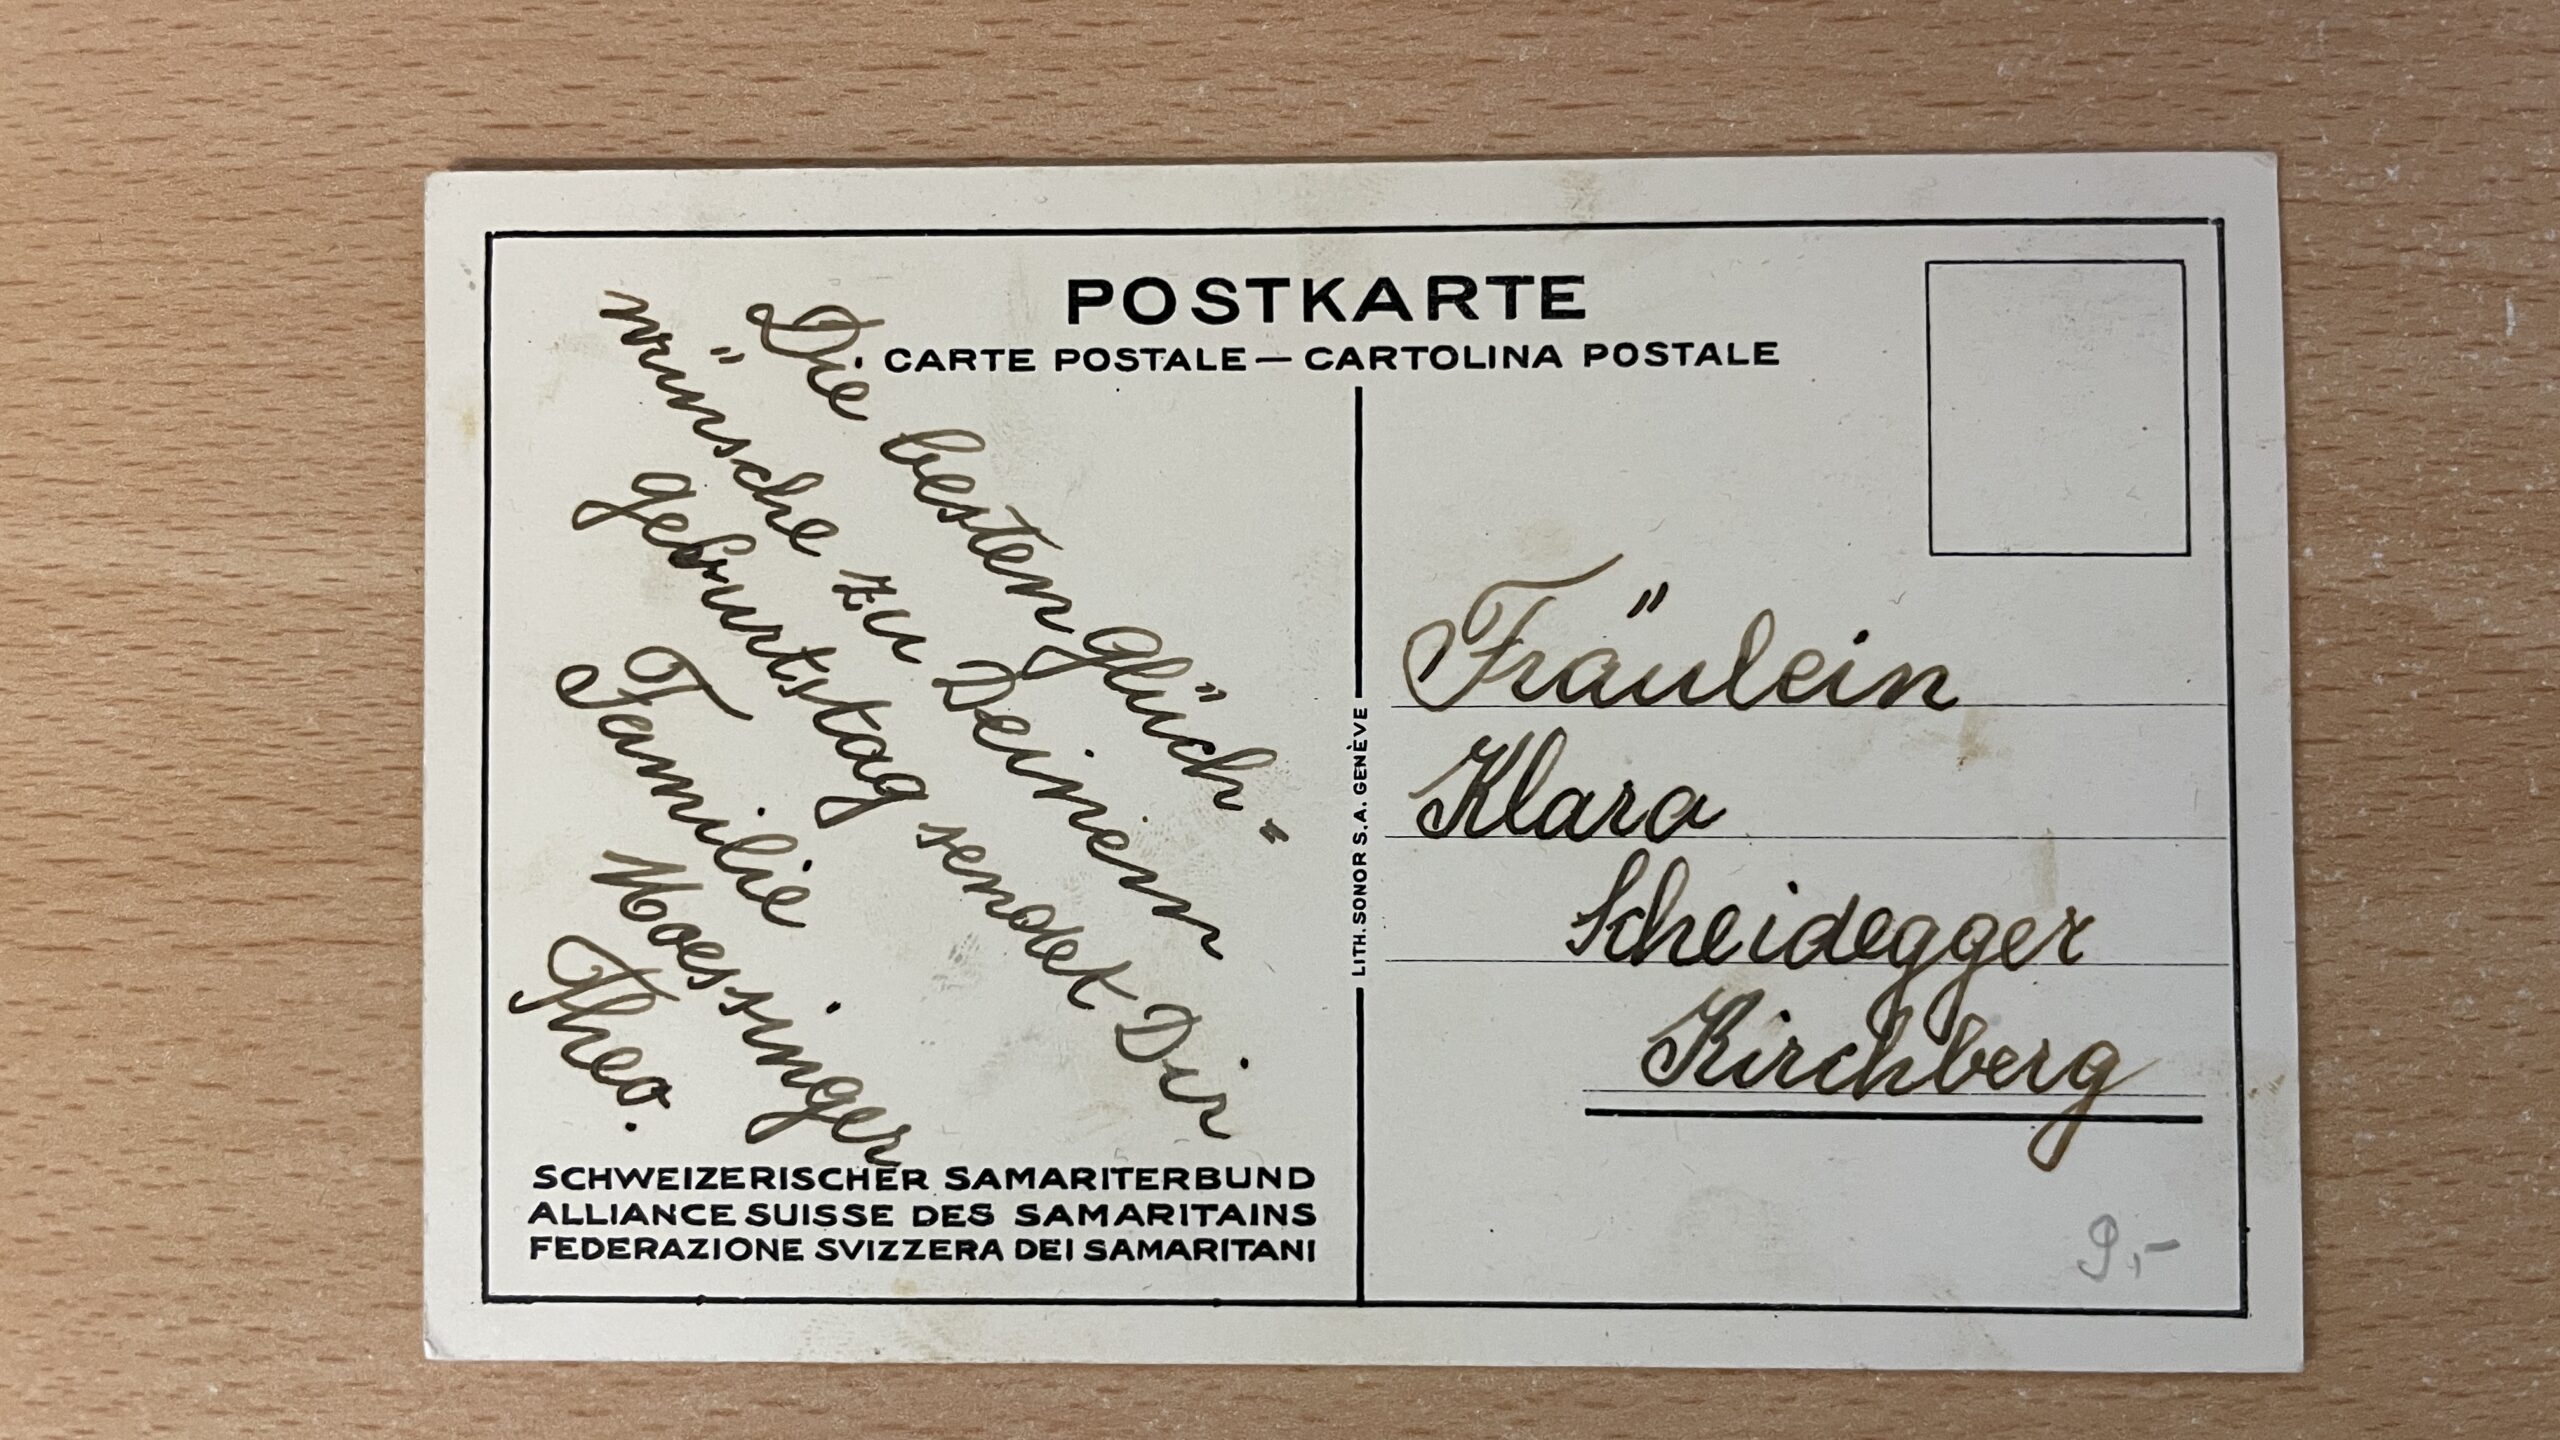 POSTKARTE
CARTE POSTALE — CARTOLINA POSTALE
Die besten Glück-
wünsche zu Deinem
geburtstag sendet Dir
Familie
Moessinger
Theo.
SCHWEIZERISCHER SAMARITERBUND
ALLIANCE SUISSE DES SAMARITAINS
FEDERAZIONE SVIZZERA DEI SAMARITANI
LITH. SONOR S.A. GENÈVE
Fräulein
Klara
Scheidegger
Kirchberg
9,-